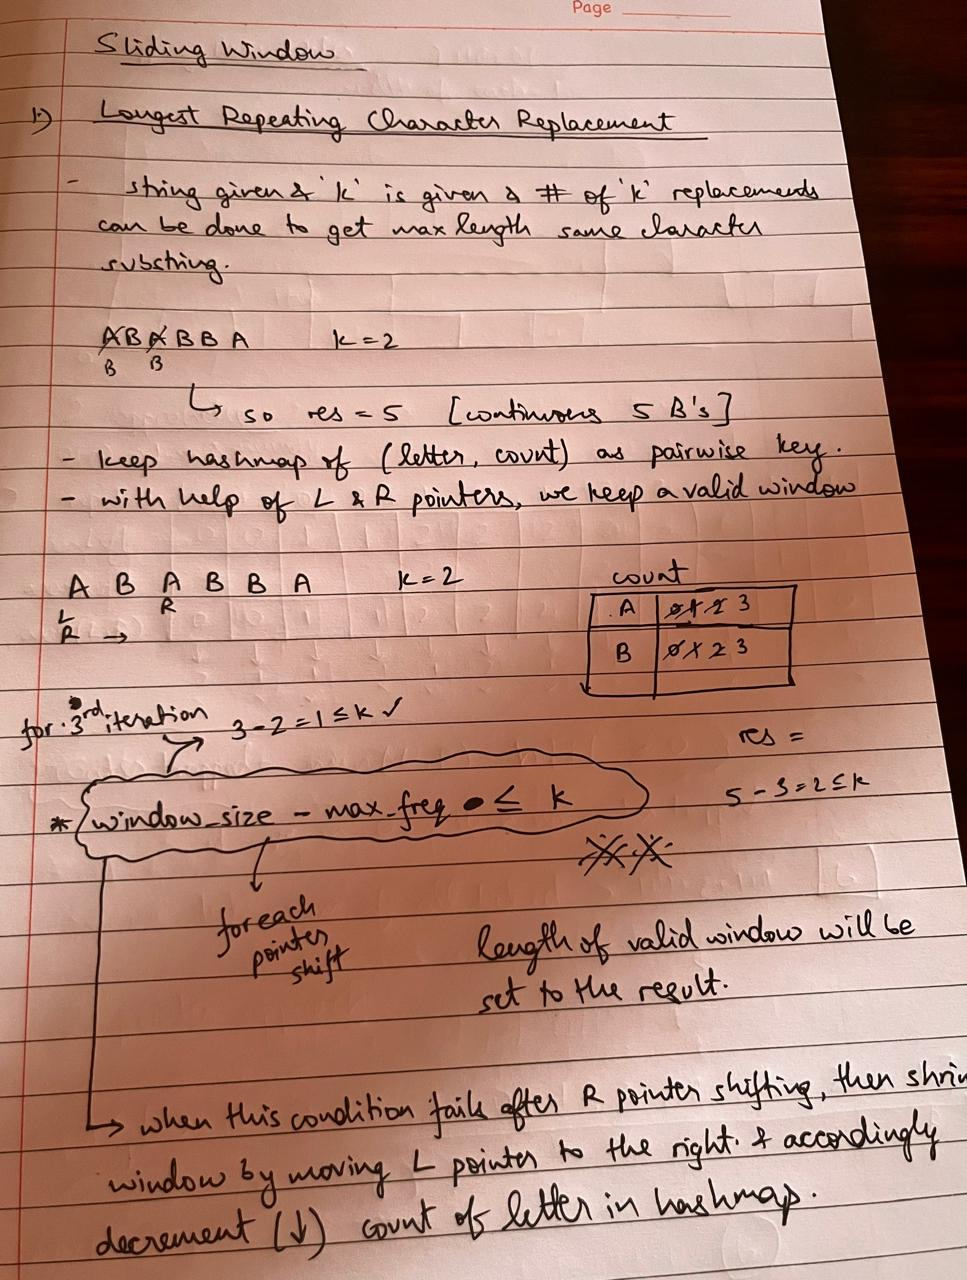 Page
Sliding Window
1) Longest Repeating Character Replacement
- string given & 'k' is given & # of 'k' replacements
can be done to get max length same character
substring.
ABABBA k=2
B B
↳ so res = 5 [continuous 5 B's]
- keep hashmap of (letter, count) as pairwise key.
- with help of L & R pointers, we keep a valid window
A B A B B A k=2
L R
R →
count
A 0 1 2 3
B 0 1 2 3
for 3rd iteration → 3-2=1 ≤ k ✓
res =
5-3=2≤k
* window_size - max_freq ≤ k
for each
pointer
shift
length of valid window will be
set to the result.
↳ when this condition fails after R pointer shifting, then shrin
window by moving L pointer to the right. & accordingly
decrement (↓) count of letter in hashmap.